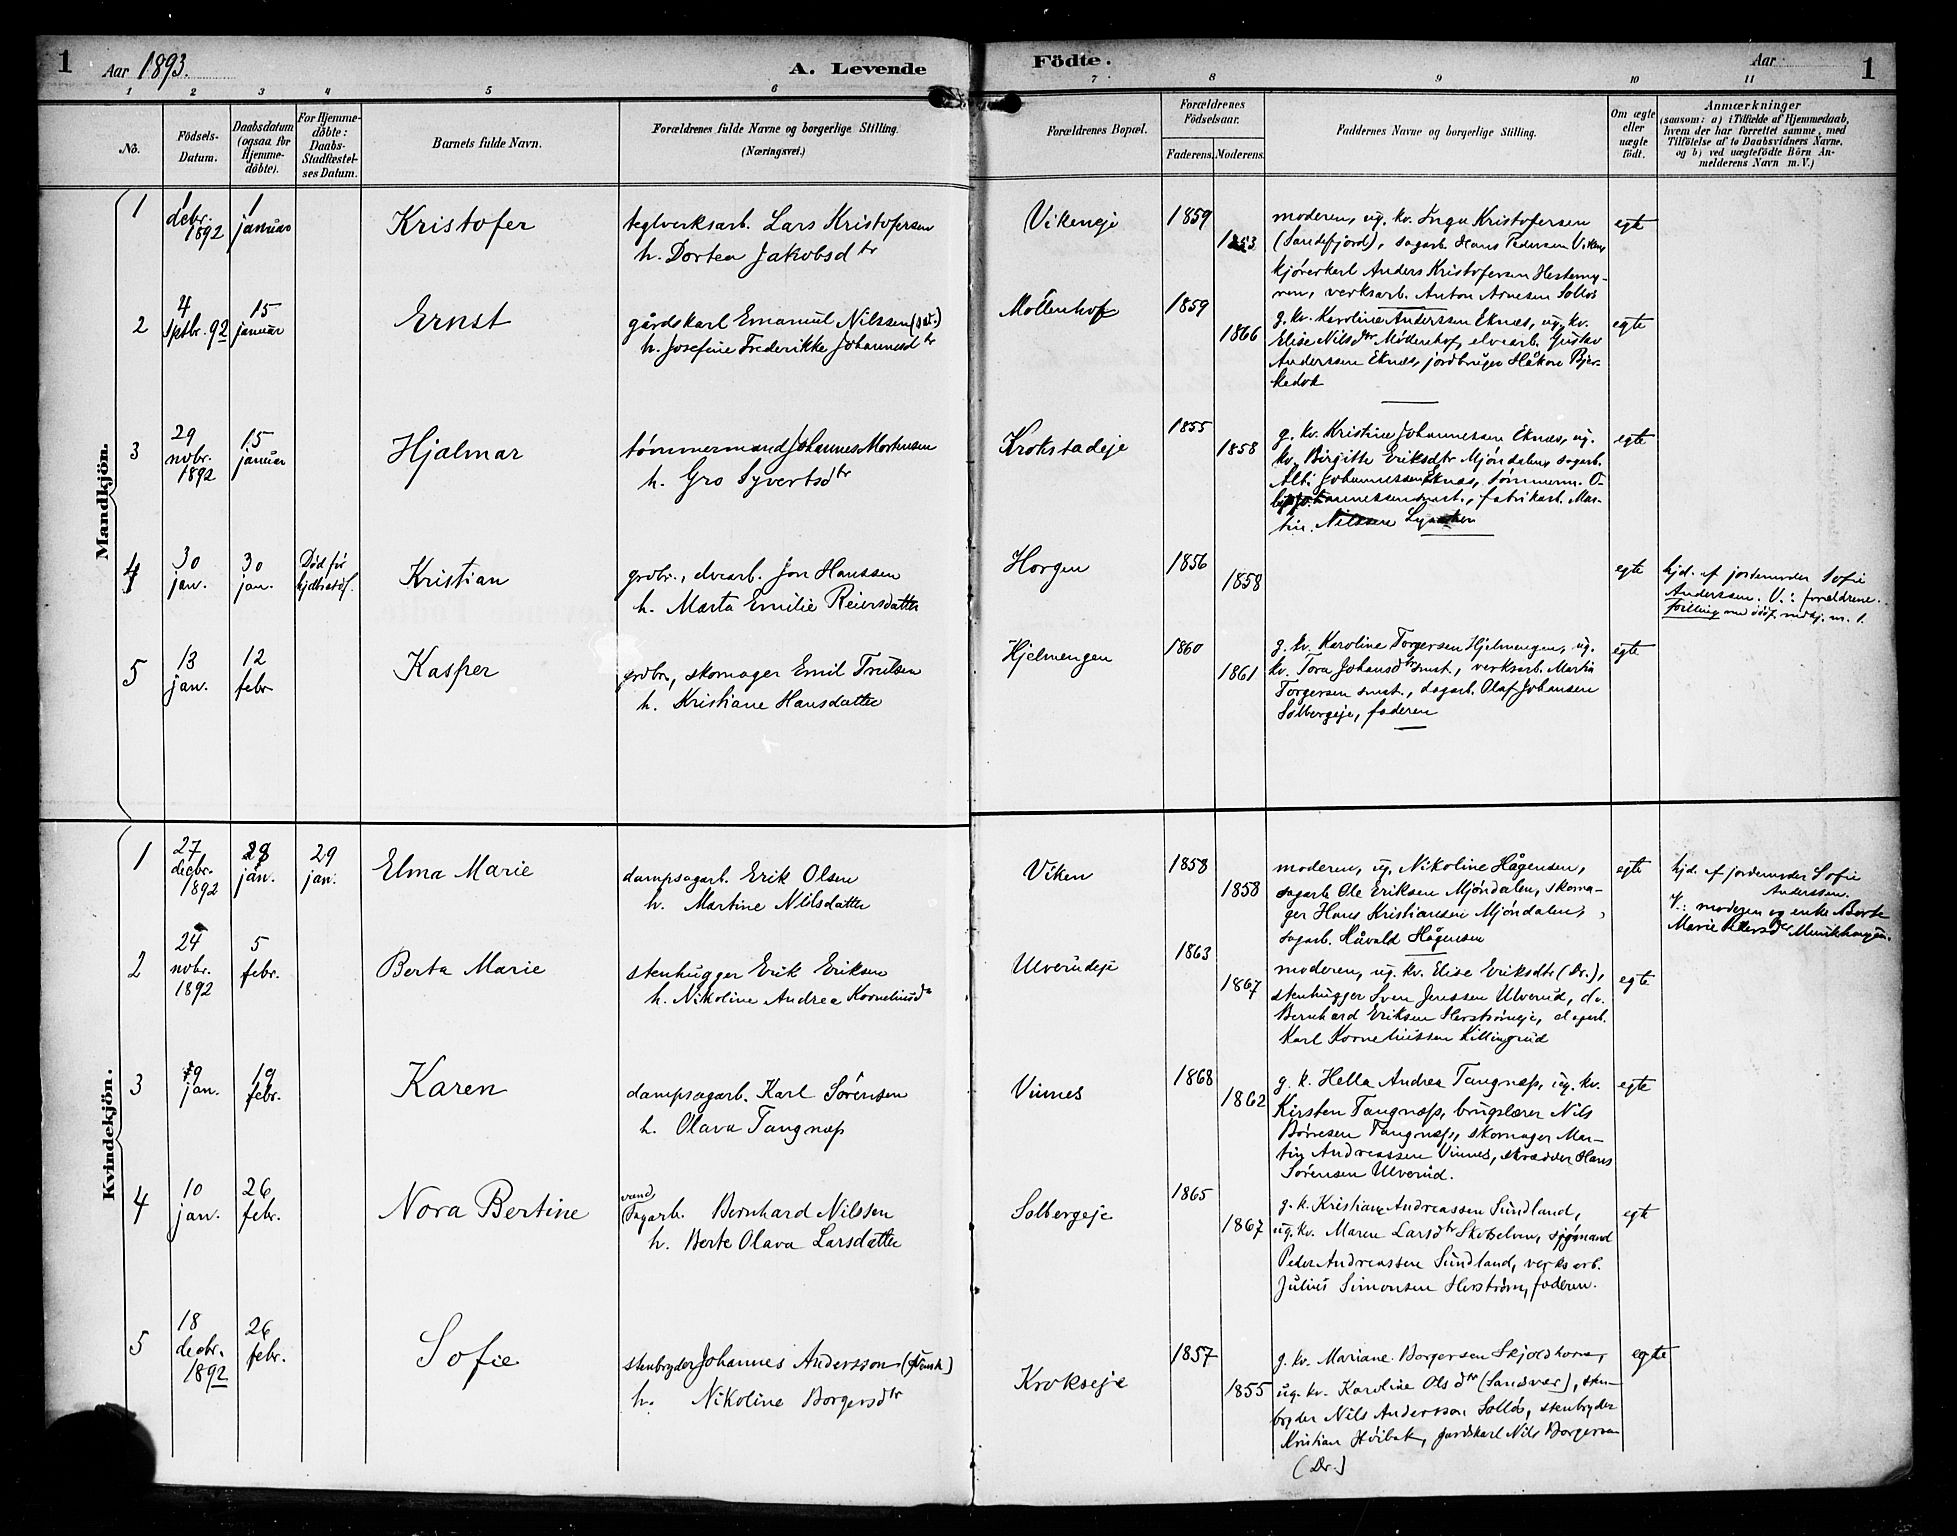 1
Aar 1893.
A. Levende
Födte.
Aar
1
1 2 3 4 5 6 7 8 9 10 11
No.
Födsels-
Datum.
Daabsdatum
(ogsaa for
Hjemme-
döbte).
For Hjemme-
döbte:
Daabs-
Stadfæstel-
ses Datum.
Barnets fulde Navn.
Forældrenes fulde Navne og borgerlige Stilling.
(Næringsvei.)
Forældrenes Bopæl.
Forældrenes
Födselsaar.
Faderens.
Moderens.
Faddernes Navne og borgerlige Stilling.
Om ægte
eller
uægte
födt.
Anmærkninger
(saasom: a) i Tilfælde af Hjemmedaab,
hvem der har forrettet samme, med
Tilföielse af to Daabsvidners Navne,
og b) ved uægtefödte Börn An-
melderens Navn m. V.)
Mandkjön.
1
1
debr.
1892
1
januar
Kristofer
teglverksarb. Lars Kristofersen
h. Dortea Jakobsdtr
Vikeneje
1859
1853
moderen, ug. kv. Inga Kristofersen
(Sandefjord), sagarb. Hans Pedersen Viken
kjørerkarl Anders Kristofersen Hestemy-
ren, verksarb. Anton Arnesen Solløs
egte
2
4
Septbr. 92
15
januar
Ernst
gårdskarl Emanuel Nilssen
h. Josefine Frederikke Johannesdtr
Möllenhof
1859
1866
g. kv. Karoline Anderssen Eknæs, ug. kv.
Elise Nilsdtr Møllenhof, elvearb. Gustav
Anderssen Eknæs, jordbruger Håkon Bjer-
kedok
egte
3
29
novbr.
1892
15
januar
Hjalmar
tømmermand Johannes Mortensen
h. Gro Syvertsdtr
Krokstadeje
1855
1858
g. kv. Kristine Johannessen Eknæs, ug.
kv. Birgitte Eriksdtr Mjøndalen, sagarb.
Johannessen Eknæs, tømmerm. O-
smst., fabrikarb. Mar-
tin Nilssen
egte
4
30
jan.
30
jan.
Død før
Kristian
grdbr., elvearb. Jon Hanssen
h. Marta Emilie Reiersdatter
Horgen
1856
1858
egte
hjd. af jordemoder Sofie
Anderssen. V.: forældrene.
5
13
jan.
12
febr
Kasper
grdbr., skomager Emil Trulsen
h. Kristiane Hansdatter
Hjelmengen
1860
1861
g. kv. Karoline Torgersen Hjelmengen, ug.
kv. Tora Johansdtr smst., verksarb. Martin
Torgersen smst., dagarb. Olaf Johansen
Solbergeje, faderen
egte
Kvindekjön.
1
27
decbr.
1892
29
jan.
29
jan.
Elma Marie
dampsagarb. Erik Olsen
h. Martine Nilsdatter
Viken
1858
1858
moderen, ug. Nikoline Hågensen,
sagarb. Ole Eriksen Mjøndalen, skoma-
ger Hans Kristiansen Mjøndalen,
sagarb. Håvald Hågensen
egte
hjd. af jordemoder Sofie
Anderssen.
V.: moderen og enke Berte
Marie
2
24
novbr.
1892
5
febr.
Berta Marie
stenhugger Erik Eriksen
h. Nikoline Andrea Korneliusd
Ulverudeje
1863
1867
moderen, ug. kv. Elise Eriksdtr (Dr.),
stenhugger Sven Jenssen Ulverud, do.
Bernhard Eriksen Herstrømeje, dagarb.
Karl Korneliussen Killingrud
egte
3
jan.
19
febr.
Karen
dampsagarb. Karl Sørensen
h. Olava Tangnæs
Vinnes
1868
1862
g. k. Hella Andrea Tangnæs, ug. kv.
Kirsten Tangnæs, brugslærer Nils
Børresen Tangnæs, skomager Mar-
tin Andreassen Vinnes, skrædder Hans
Sørensen Ulverud.
egte
4
10
jan.
26
febr.
Nora Bertine
vand,
Sagarb. Bernhard Nilsen
h. Berte Olava Larsdatter
Solbergeje
1865
1867
g. k. Kristiane Andreassen Sundland,
ug. kv. Maren Larsdtr Skotselven, sjømand
Peder Andreassen Sundland, verksarb.
Julius Simonsen Herstrøm, faderen.
egte
5
18
decbr.
1892
26
febr.
Sofie
stenbryder Johannes Andersson (svensk)
h. Nikoline Borgersdtr
Krokseje
1857
1855
g. kv. Mariane Borgersen Skjoldhorne,
ug. kv. Karoline Olsdtr (Sandsvær), sten-
bryder Nils Andersson Solløs, stenbryder
Kristian Høibak, gårdskarl Nils Borgersen
(Dr.)
egte